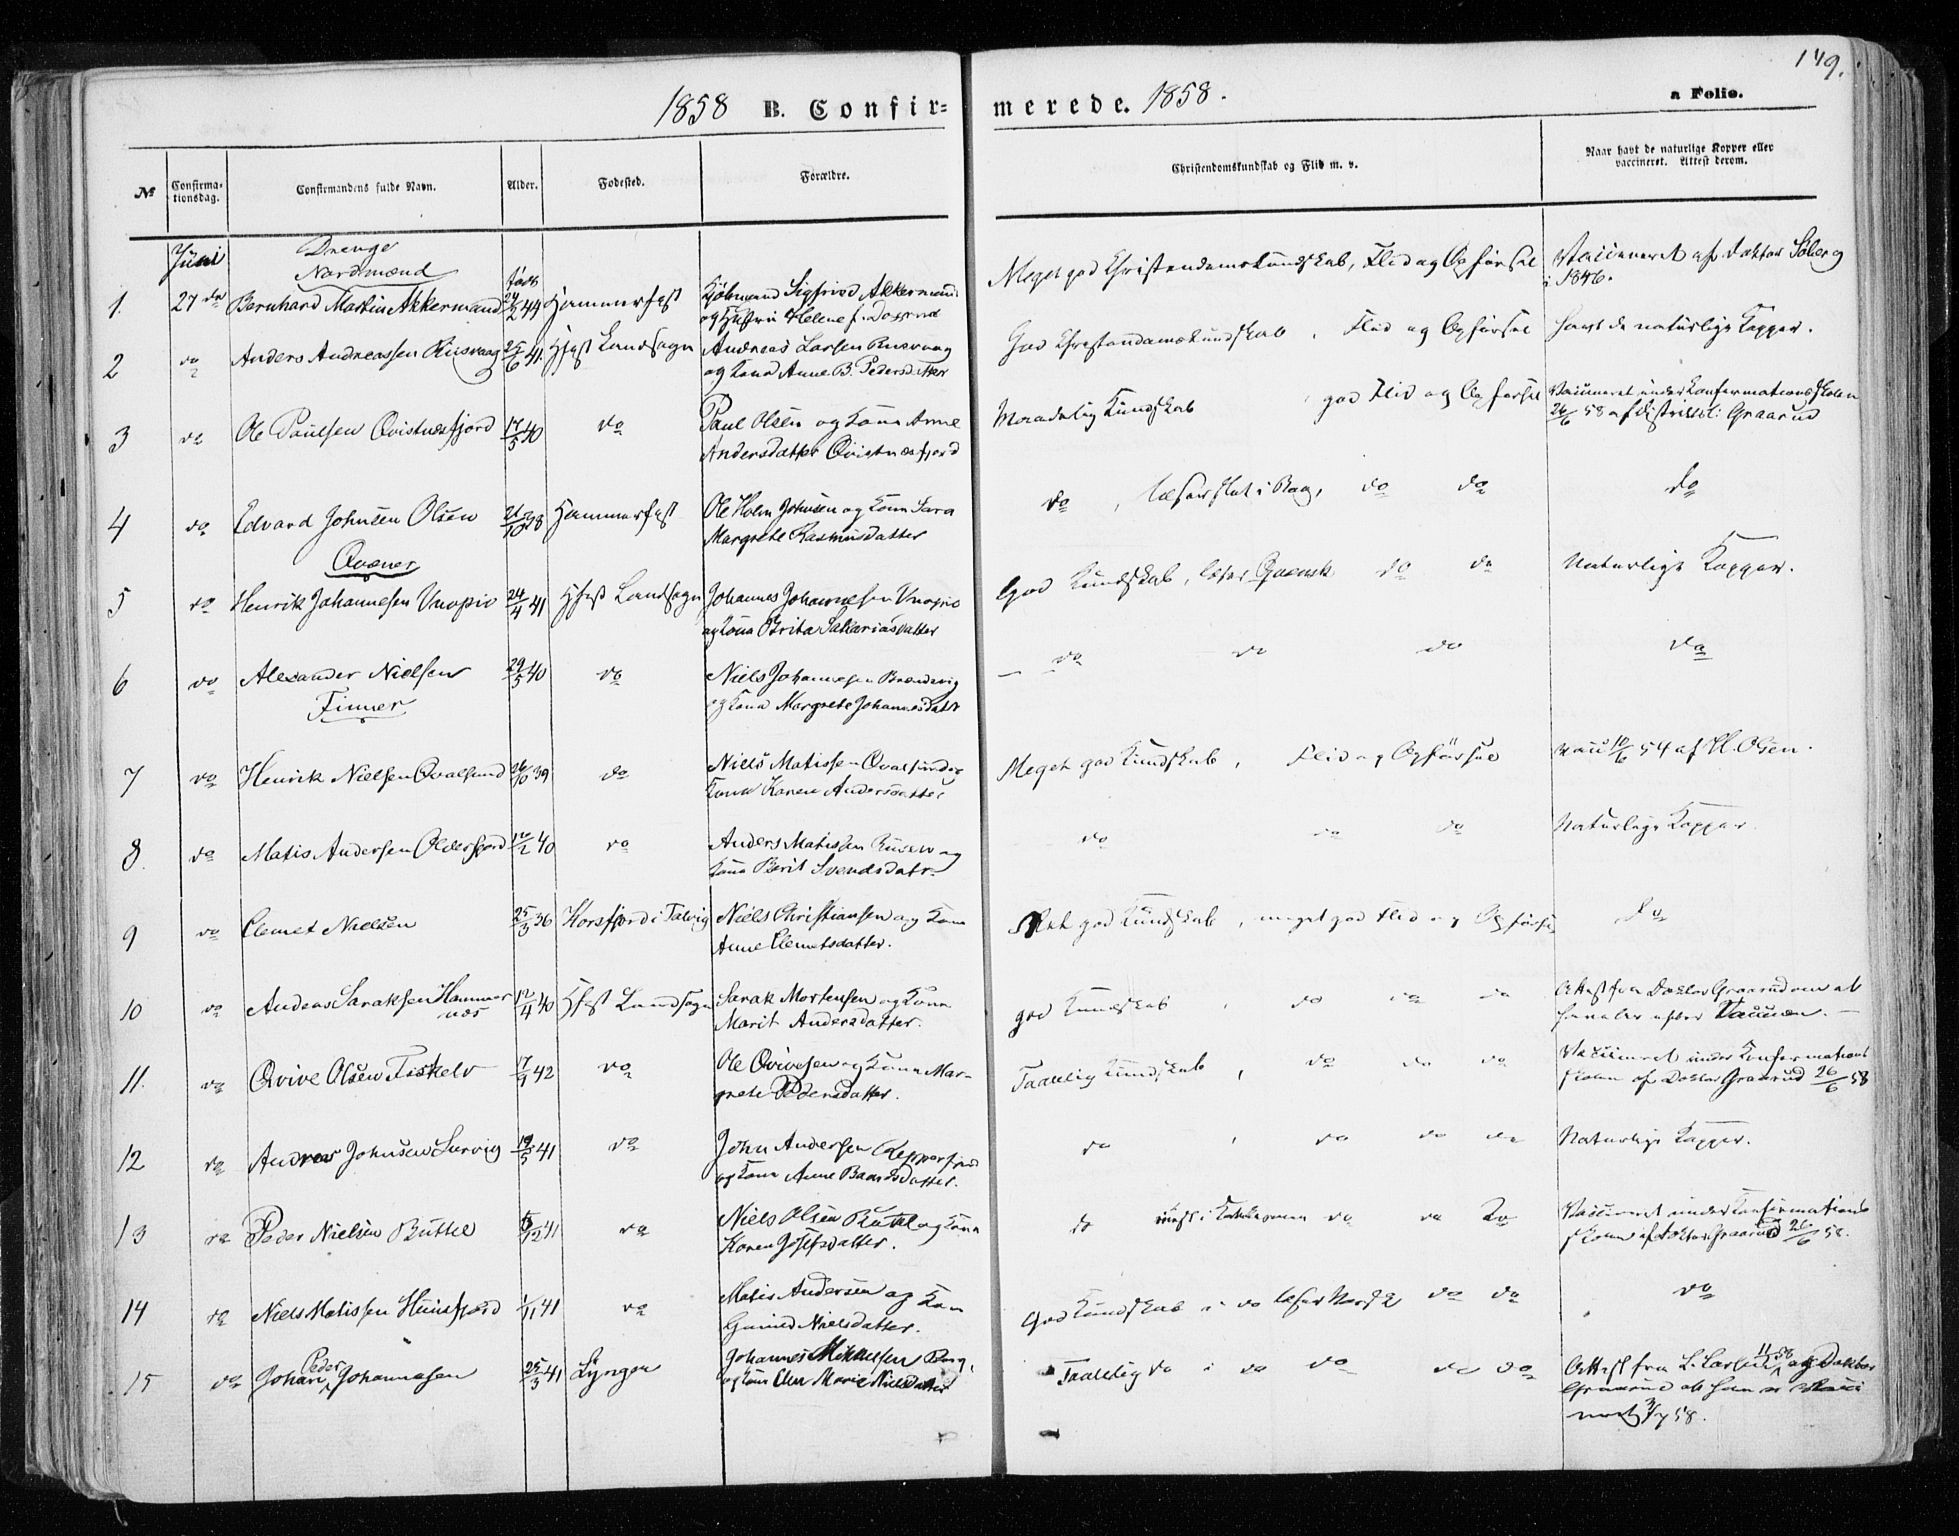 149.
1858 B. Confir= merede. 1858.
a Folio.
№
Confirma-
tionsdag.
Confirmandens fulde Navn.
Alder.
Fødested.
Forældre.
Christendomskundskab og Flid m. v.
Naar havt de naturlige Kopper eller
vaccineret. Attest derom.
Juni
Drenge
Nordmænd
født
1. 27de Bernhard Martin Akkermand 24/2 44 Hammerfest Kjøbmand Sigfried Akkermand
og Hustru Helene f.
Meget god Christendomskundskab, Flid og Opførsel Vaccineret af Doktor Solberg
i 1846.
2 do Anders Andreassen Rusvaag 25/6 41 Hfest Landsogn Andreas Larsen Rusvaag
og Kone Anne B. Pedersdatter
God Christendomskundskab, Flid og Opførsel havt de naturlige Kopper.
3 do Ole Paulsen Qvistnæsfjord 17/5 40 do Paul Olsen og Kone Anne
Andersdatter Qvistnæsfjord
Maadelig Kundskab, god Flid og Opførsel Vaccineret under Konfirmationsskolen
26/6 58 af Graarud
4 do Edvard Johnsen Olsen 21/10 38 Hammerfest Ole Holm Johnsen og Kone Sara
Margrete Rasmusdatter
do, læser slet i Bog, do do do
Qvæner
5 do Henrik Johannesen Vuopio 24/4 41 Hfest Landsogn Johannes Johannesen Vuopio
og Kone Brita Sakariasdatter
God Kundskab, læser Qvensk do do Naturlige Kopper.
6 do Alexander Nielsen 29/5 40 do Niels Johannesen
og Kone Margrete Johannesdatr
do do do do
Finner
7 do Henrik Nielsen Qvalsund 26/10 39 do Niels Matissen Qvalsund og
Kone Karen Andersdatter
Meget god Kundskab, Flid og Opførsel vacc 10/6 54 af H. Olsen.
8. do Matis Andersen Olderfjord 12/2 40 do Anders Matissen og
Kone Berit Svendsdatr.
do do do Naturlige Kopper.
9 do Clemet Nielsen 25/3 36 Korsfjord i Talvig Niels Christiansen og Kone
Anne Clemetsdatter.
god Kundskab, meget god Flid og Opførsel do
10 do Andreas Saraksen Hammer
næs 12/4 40 Hfest Landsogn Sarak Mortensen og Kone
Marit Andersdatter.
god Kundskab, do do do Attest fra Doktor Graarud om at
11. do Qvive Olsen Fiskelv 17/1 42 do Ole Qvivesen og Kone Mar-
grete Pedersdatter.
Taalelig Kundskab, do do do Vaccineret under Konfirmations
skolen af Doktor Graarud 26/6 58
12 do Andreas Johnsen Survig 19/5 41 do John Andersen Repparfjord
og Kone Anne Baardsdatter.
do, do do do Naturlige Kopper.
13 do Peder Nielsen Buttel 13/12 41 do Niels Olsen Buttel og Kone
Karen Josefsdatter.
do do do do Vaccineret under Konfirmations
skolen af Doktor Graarud 26/6 58.
14 do Niels Matissen 1/11 41 do Matis Andersen og Kone
Gunild Nielsdatter.
God Kundskab i do læser Norsk do do do
15 do Johan Peder Johannesen 25/3 41 Lyngen Johannes Mikkelsen
og Kone Elen Marie Nielsdatter
Taalelig do i do do do do Attest fra L. Larsen 11/ 58 og Doktor
Graarud at han er
3/7 58.